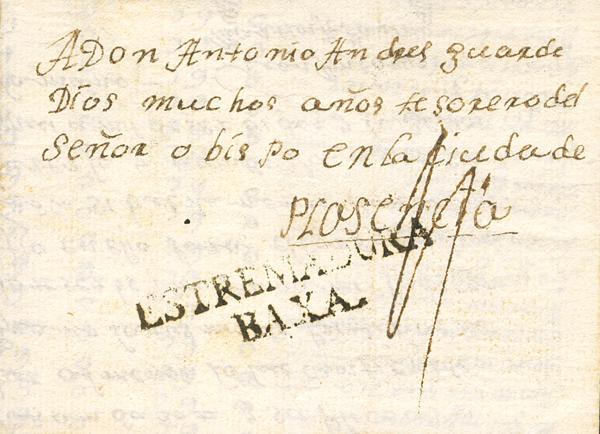 A Don Antonio Andres guarde
Dios muchos años tesorero del
Señor obispo en la ciuda de
Plasencia
ESTREMADURA
BAXA.